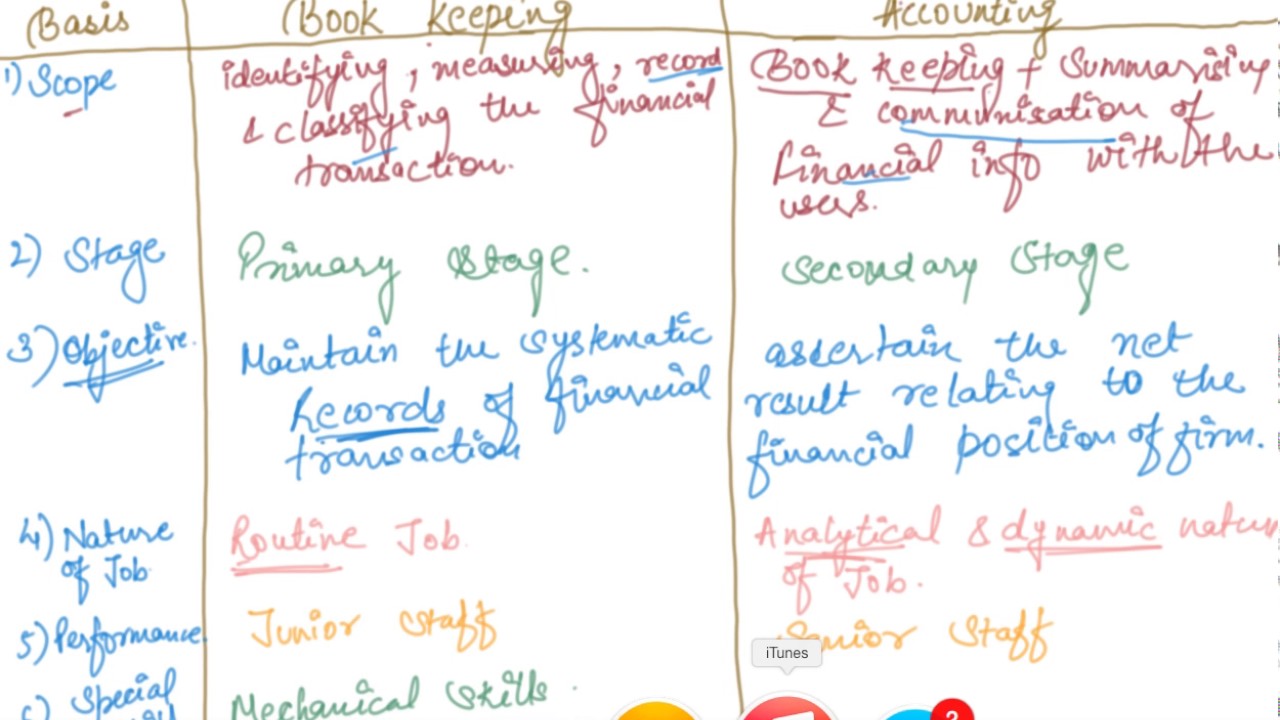 Basis Book Keeping Accounting
1) Scope identifying, measuring, record Book Keeping + Summarising
& classifying the financial & communication of
transaction. financial info with the
users.
2) Stage Primary Stage. Secondary Stage
3) Objective. Maintain the systematic ascertain the net
Records of financial result relating to the
transaction financial position of firm.
4) Nature Routine Job. Analytical & dynamic natur
of Job of Job.
5) Performance. Junior Staff Senior Staff
iTunes
Special Mechanical Skills.
2